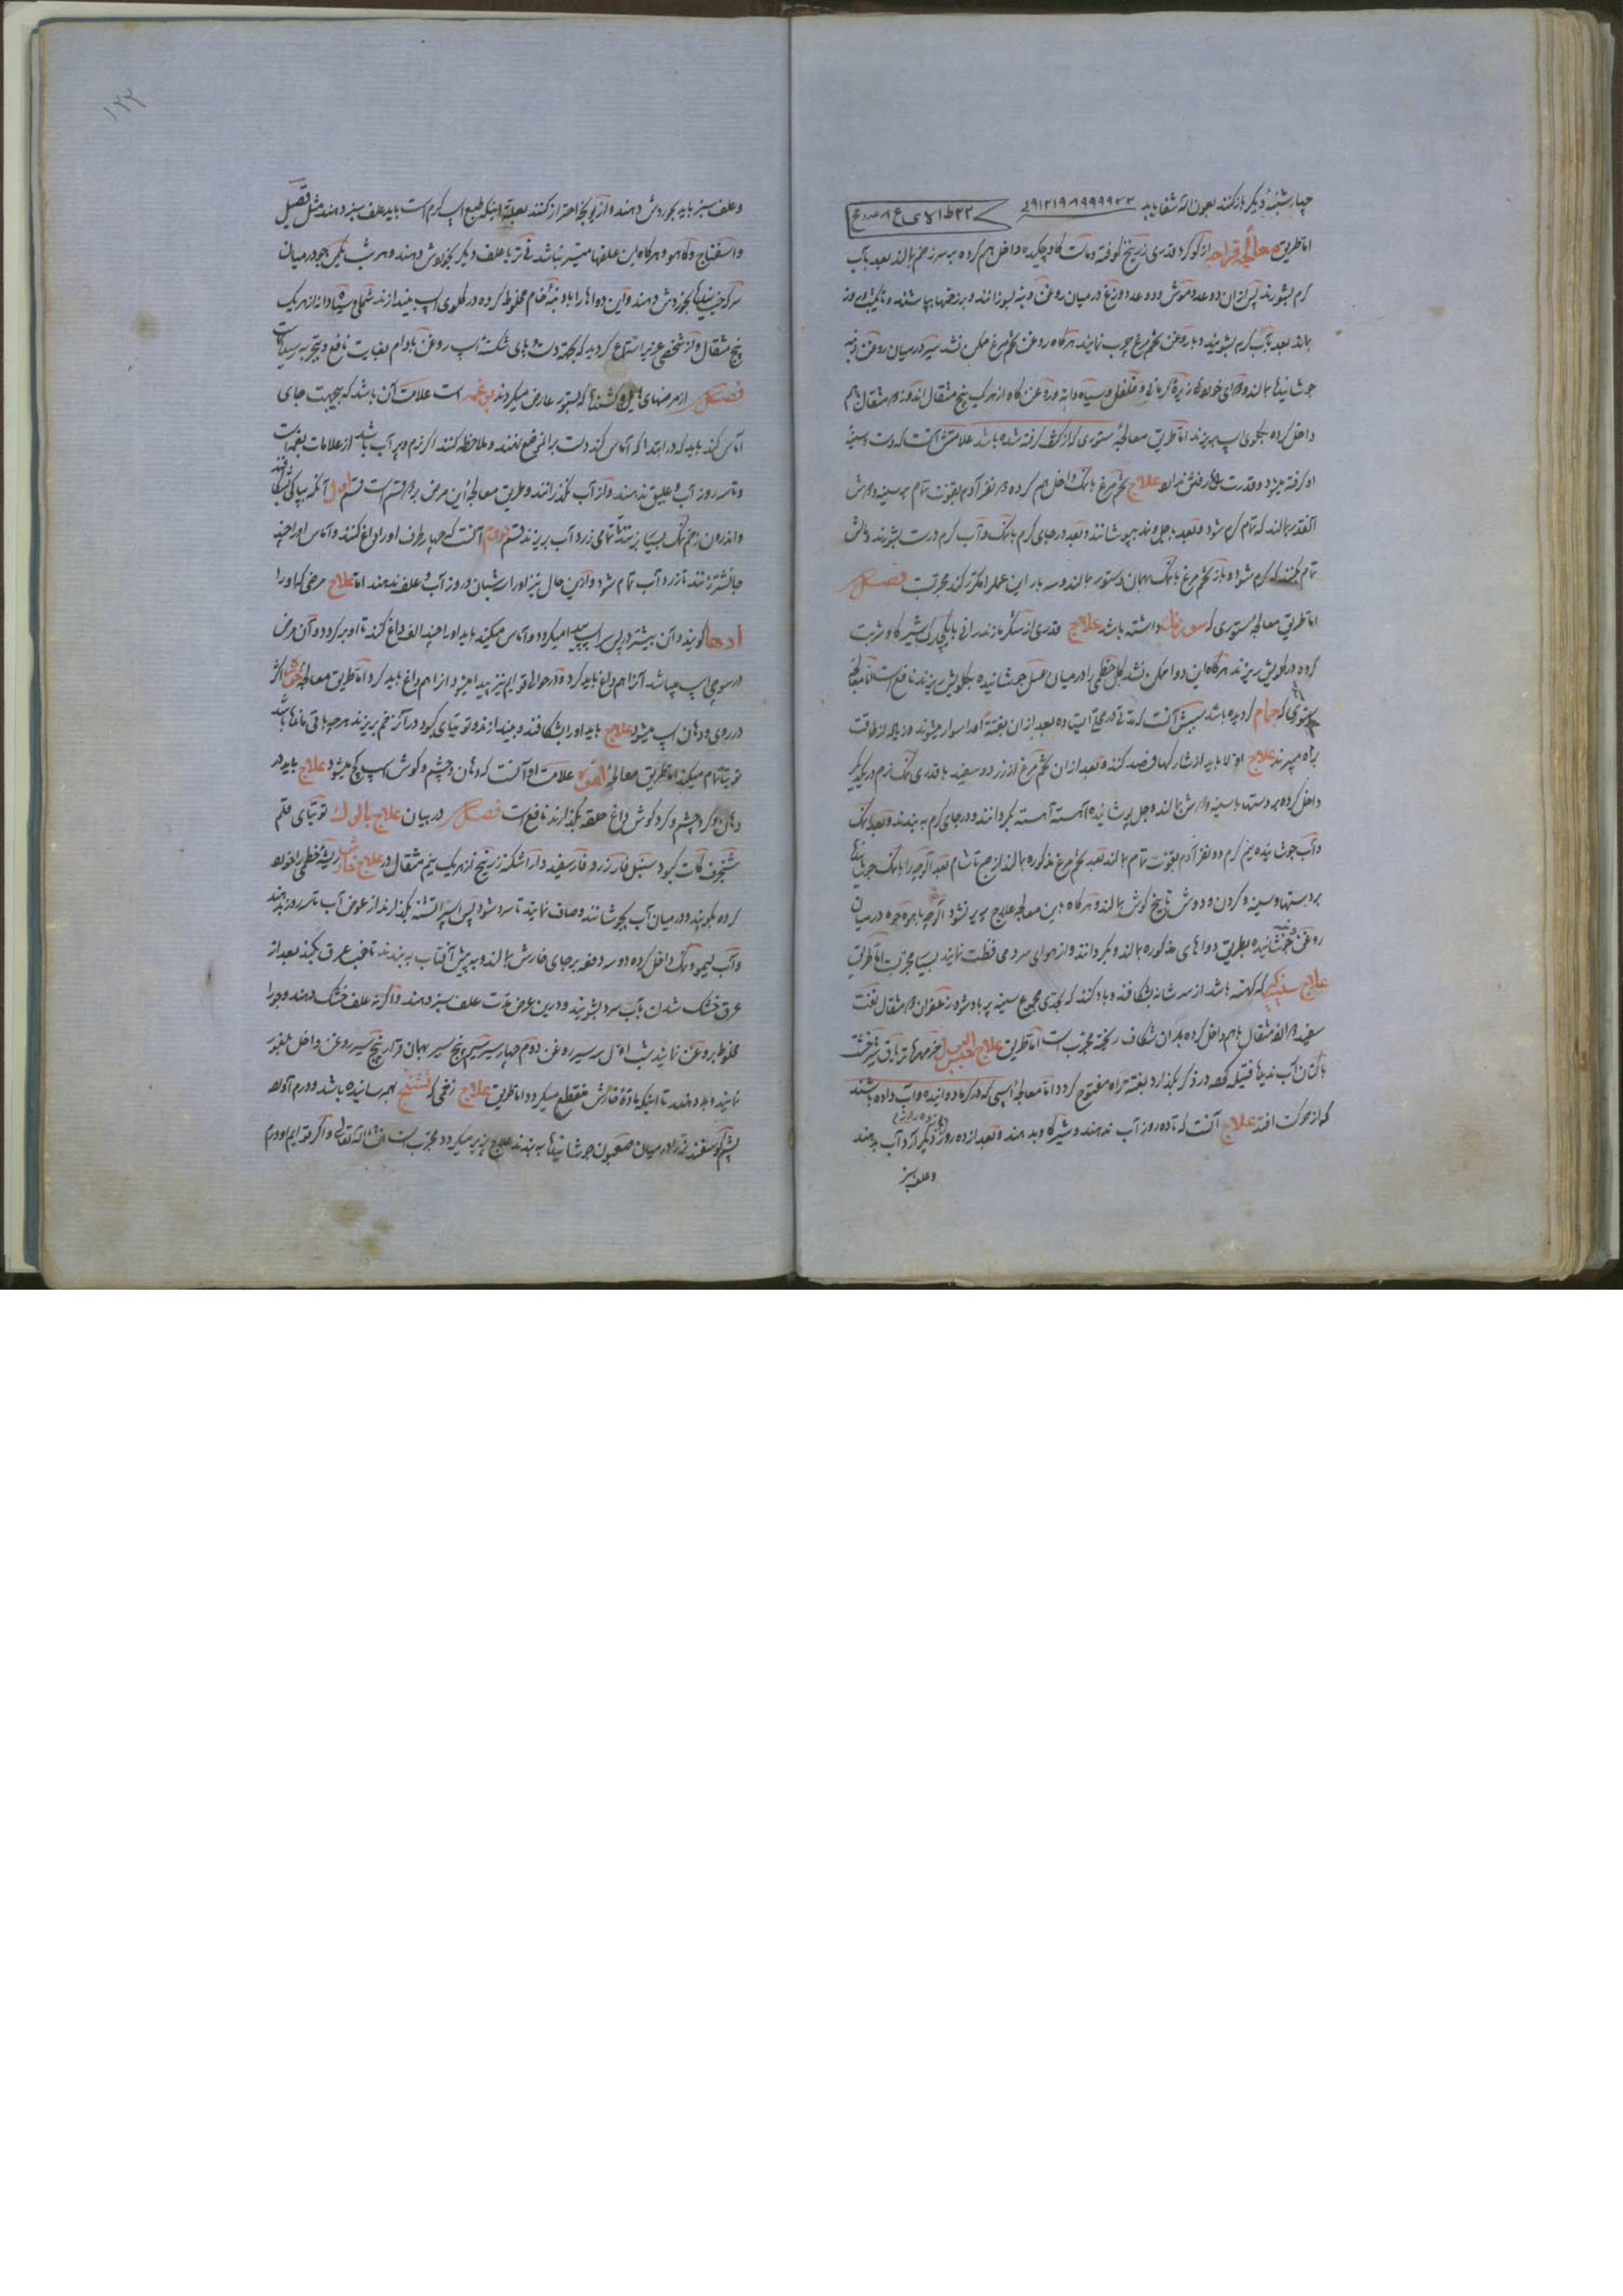 چهارشنبهٔ دیگر باز کنند بعون الله شفا یابد
اما طریق معالجه قراحه از گوگرد قدری زرنیخ کوفته و ماست گاو چکیده داخل هم کرده بر سر زخم بمالند بعد بآب
گرم بشورند پس از آن دو عدد موش و دو عدد وزغ در میان روغن دنبه بسوزانند و بر زخمها بپاشند و تا یکشب و روز
بماند بعد بآب گرم بشویند و با روغن تخم مرغ چرب نمایند هرگاه روغن تخم مرغ ممکن نشد سیر در میان روغن دنبه
جوشانیده بمالند و زیرهٔ کرمانی و فلفل و سیاه دانه و روغن گاو از هر یک پنج مثقال
داخل کرده بگلوی اسپ بریزند اما طریق معالجهٔ ستوری که از کتف گرفته شده باشد علامتش آنست که دست و سینهٔ
او گرفته میشود و قدرت راه رفتن ندارد علاج تخم مرغ با نمک داخل هم کرده دو نفر آدم بقوت تمام بر سینه و دوش
آنقدر بمالند که تمام گرم شود و بعد با جل و نمد بپوشانند و بعد در جای گرم با نمک و آب گرم درست بشورند و مالش
تمام بکنند که گرم شود و باز تخم مرغ با نمک بهمان دستور بمالند و سه بار این عمل را مکرر کند مجربست فصل
اما طریق معالجهٔ ستوری که سوزنک داشته باشد علاج قدری از شکر مازندرانی با یکچارک شیر گاو شربت
کرده در گلویش ریزند هرگاه این دوا ممکن نشد گل خطمی را در میان عسل جوشانیده بگلویش ریزند نافع است اما معالجهٔ
ستوری که حمام گردیده باشد سببش آنست که مدتی در محل ایستاده بعد از آن بغتة او را سوار میشوند و زیاده از طاقت
براه میبرند علاج اولا باید از شارگها فصد کنند و بعد از آن تخم مرغ از زرده و سفیده با قدری نمک نرم در یکدیگر
داخل کرده بر دستها با سینه و دوش بمالند و جل پوشانیده آهسته آهسته بگردانند و در جای گرم به بندند و بعد نمک
و آب جوشانیده نیم گرم دو نفر آدم بقوت تمام بمالند بعد تخم مرغ مذکوره بمالند از صبح تا شام
بر دستها و سینه و گردن و دوش تا بیخ گوش بمالند و هرگاه باین معالجه علاج پذیر نشود
روغن جوشانیده بطریق دواهای مذکوره بمالند و بگردانند و از هوای سرد محافظت نمایند بسیار مجربست اما طریق
علاج سینه گیر که کهنه باشد از سر شانه بشکافند و باد کنند که بحدی مجموع سینه پر باد شود زعفران دو مثقال
سفید دو مثقال باهم داخل کرده بدان شکاف ریخته مجربست اما طریق علاج حبس البول
با کتان آب ندیده فتیله کرده در ذکر بگذارد بغتة راه مفتوح گردد اما معالجهٔ اسپی که در گرما دوانیده و آب داده باشند
که از حرکت افتد علاج آنست که تا ده روز آب ندهند و شیر گاو بدهند و بعد از ده روز دیگر آرد آب بدهند
و علف سبز
۱۲۳
و علف سبز باید بخوردش دهند و از یونجه احتراز کنند بعلت اینکه طبع اسپ گرم است باید علف سبز دهند مثل قصیل
و اسفناج و کاهو و هرگاه این علفها میسر نباشد نی تر با علف دیگر بخوردش دهند و هر شب یکمن جو در میان
سرکه خیسانیده بخوردش دهند و این دواها را با دنبهٔ خام مخلوط کرده در گلوی اسپ بیندازند سیاه دانه از هر یک
پنج مثقال و از شخصی عزیز استماع گردید که بجهت دست و پای شکستهٔ اسپ روغن بادام بغایت نافع و بتجربه رسیده است
فصل از مرضهای که بستور عارض میگردند بوغمه است علامت آن باشد که بیجهت جای
آماس کند باید که در ابتدا که آماس کند دست بر آن موضع نهند و ملاحظه کنند اگر نرم و پر آب باشد از علامات بوغمه است
و تا سه روز آب و علیق ندهند و از آب نگذرانند و طریق معالجهٔ این مرض بر دو قسم است قسم اول آنکه بپاکی بشکافند
و اندرون زخم نمک بسیار بزنند تا تمامی زرد آب بریزند قسم دوم آنست که چهار طرف او را داغ کنند و آماس او را چند
جا نشتر زنند تا زرد آب تمام شود و از این حال نیز او را شبان و روز آب و علف ندهند اما علاج مرضی که او را
ادها گویند و آن بیشتر در پس اسپ پیدا میگردد و آماس میکند باید او را چند الف داغ کنند تا او بر گردد و آن مرض
در سوم اسپ میباشد آنرا هم داغ باید کرد و در حوالی قوایم نیز پیدا میشود از او هم داغ باید کرد اما طریق معالجهٔ
در روی و دهان اسپ میشود علاج باید او را بشکافند و بیندازند و توتیای کبود در آن زخم بریزند هر چه باقی مانده باشد
توتیا تمام میکند اما طریق معالجهٔ لقوه علامت او آنست که دهان و چشم و گوش اسپ کج میشود علاج باید در
دهان و گرد چشم و گرد گوش داغ حلقه بگذارند نافع است فصل در بیان علاج بالوک توتیای قلم
شنجرف کات کبود سنبل فار زرد و فار سفید دار اشکنه زرنیخ از هر یک نیم مثقال در علاج خارش ریشهٔ خطمی را خورد
کرده بکوبند و در میان آب بجوشانند و صاف نمایند تا سرد شود پس اسپ را تشنه بگذارند از عوض آب تا سه روز بدهند
و آب لیمو و نمک داخل کرده دو سه دفعه بر جای خارش بمالند و به پیش آفتاب به بندند تا خوب عرق بکند بعد از
عرق خشک شدن بآب سرد بشویند و در این عرض مدت علف سبز دهند و اگر نه علف خشک دهند و جو را
مخلوط بروغن نمایند شب اول سه سیر روغن دوم چهار سیر سیم پنج سیر بهمان قرار پنج سیر روغن داخل جو
نمایند و بدهند تا اینکه مادهٔ خارش منقطع میگردد اما طریق علاج زخمی که تشنج بهم رسانیده باشد و ورم آورد
پشم گوسفند تر را در میان صعبون جوشانیده به بندند علاج پذیر میگردد مجربست انشاء الله تعالی و اگر قوایم او ورم